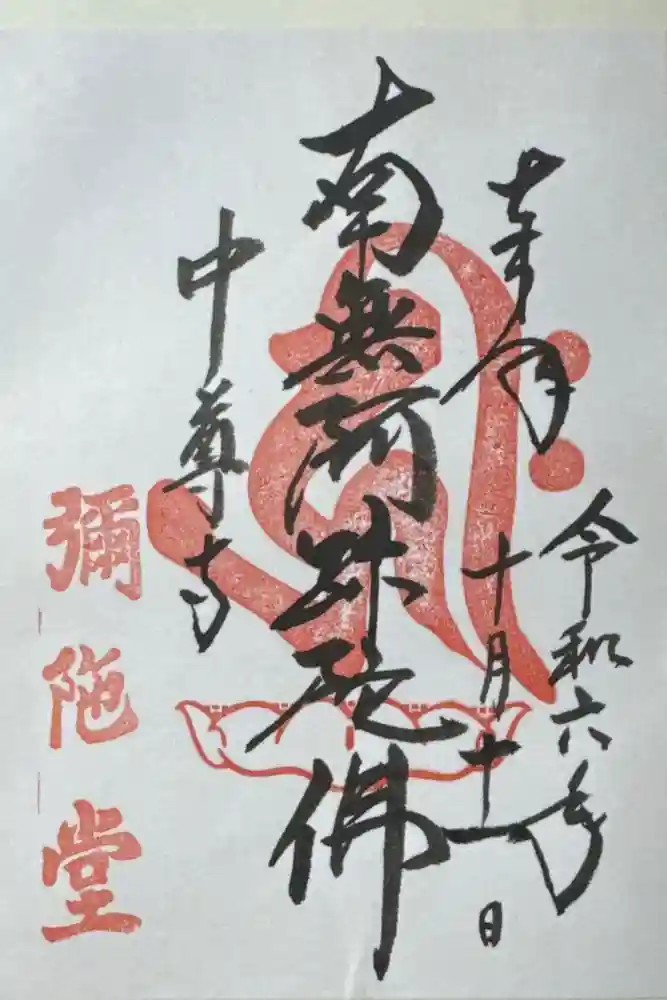 奉拝
令和六年
十月十一日
南無阿弥陀佛
中尊寺
彌陀堂